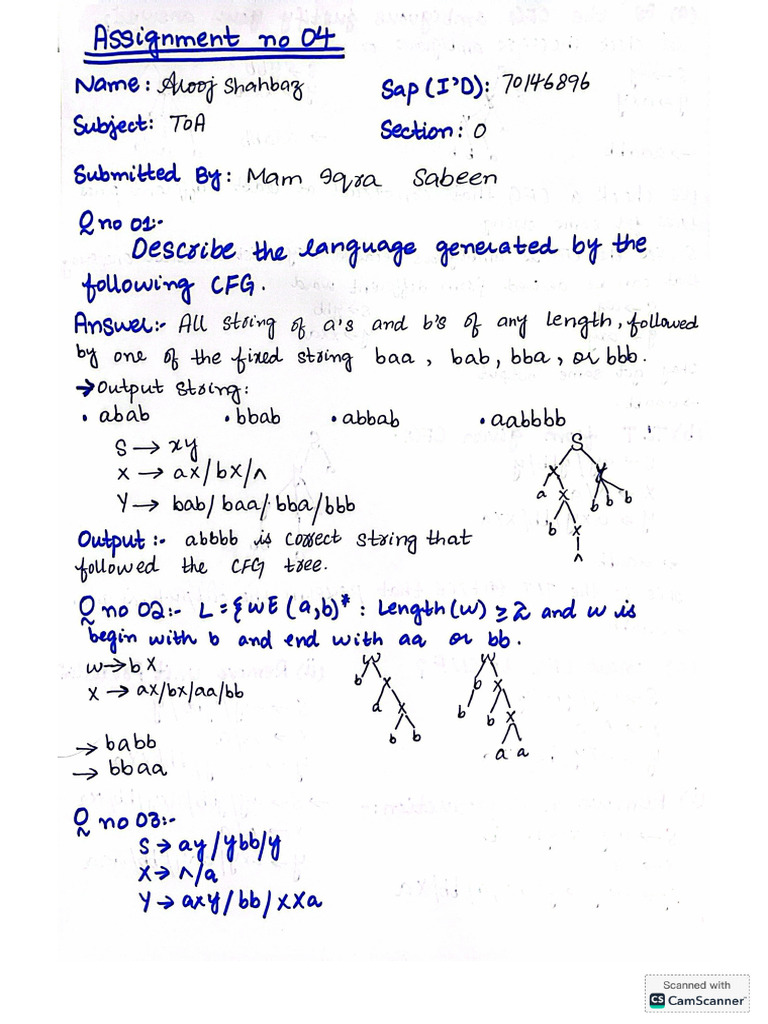 Assignment no 04
Name: Arooj Shahbaz Sap (I'D): 70146896
Subject: ToA Section: O
Submitted By: Mam Iqra Sabeen
Q no 01:-
Describe the language generated by the
following CFG.
Answer:- All string of a's and b's of any length, followed
by one of the fixed string baa, bab, bba, or bbb.
→ Output string:
• abab • bbab • abbab • aabbbb
S → xy
x → ax/bx/^
Y → bab/baa/bba/bbb
S
x Y
a x b b b
b x
^
Output:- abbbb is correct string that
followed the CFG tree.
Q no 02:- L = {wE(a,b)* : Length(w) ≥ 2 and w is
begin with b and end with aa or bb.
w → bx
x → ax/bx/aa/bb
w
b x
a x
b b
w
b x
b b x
a a
→ babb
→ bbaa
Q no 03:-
S → ay/ybb/y
X → ^/a
Y → axy/bb/xxa
Scanned with
CS CamScanner